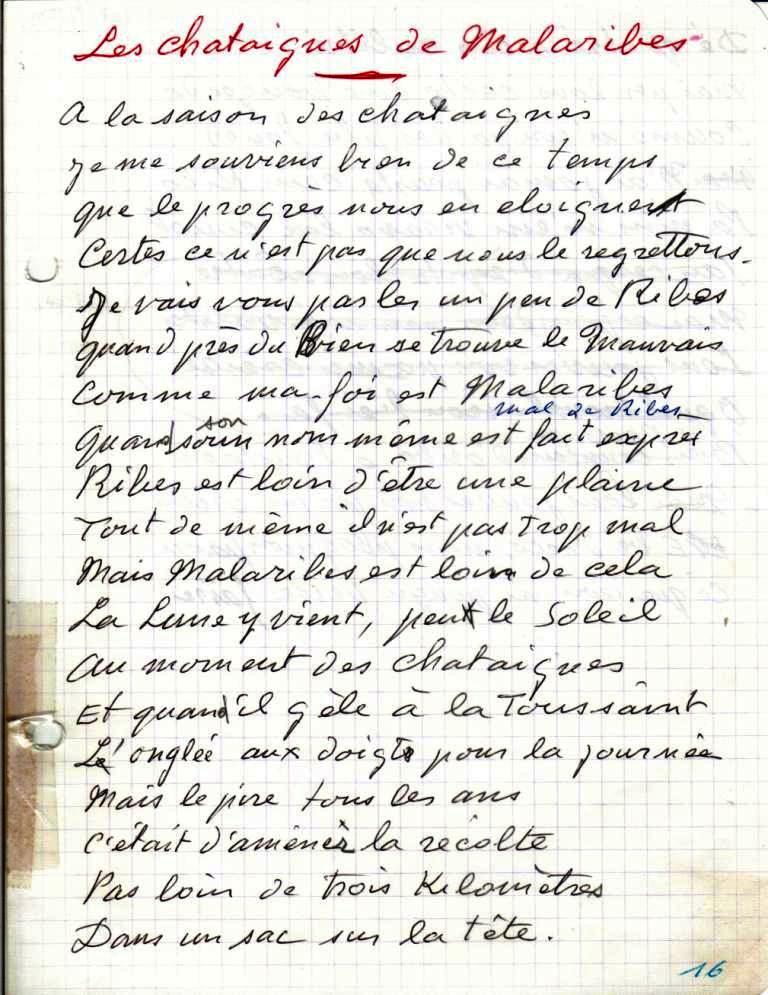 Les chataignes de Malaribes
A la saison des chataignes
Je me souviens bien de ce temps
que le progrès nous en eloignent
Certes ce n'est pas que nous le regrettons.
Je vais vous parler un peu de Ribes
quand près du Bien se trouve le Mauvais
Comme ma-foi est Malaribes
mal de Ribes
son
Quand nom même est fait exprès
Ribes est loin d'être une plaine
Tout de même il n'est pas trop mal
Mais Malaribes est loin de cela
La Lune y vient, peu le Soleil
Au moment des chataignes
Et quand il gèle à la Toussaint
L'onglée aux doigts pour la journée
Mais le pire tous les ans
C'était d'amener la récolte
Pas loin de trois Kilomètres
Dans un sac sur la tête.
16